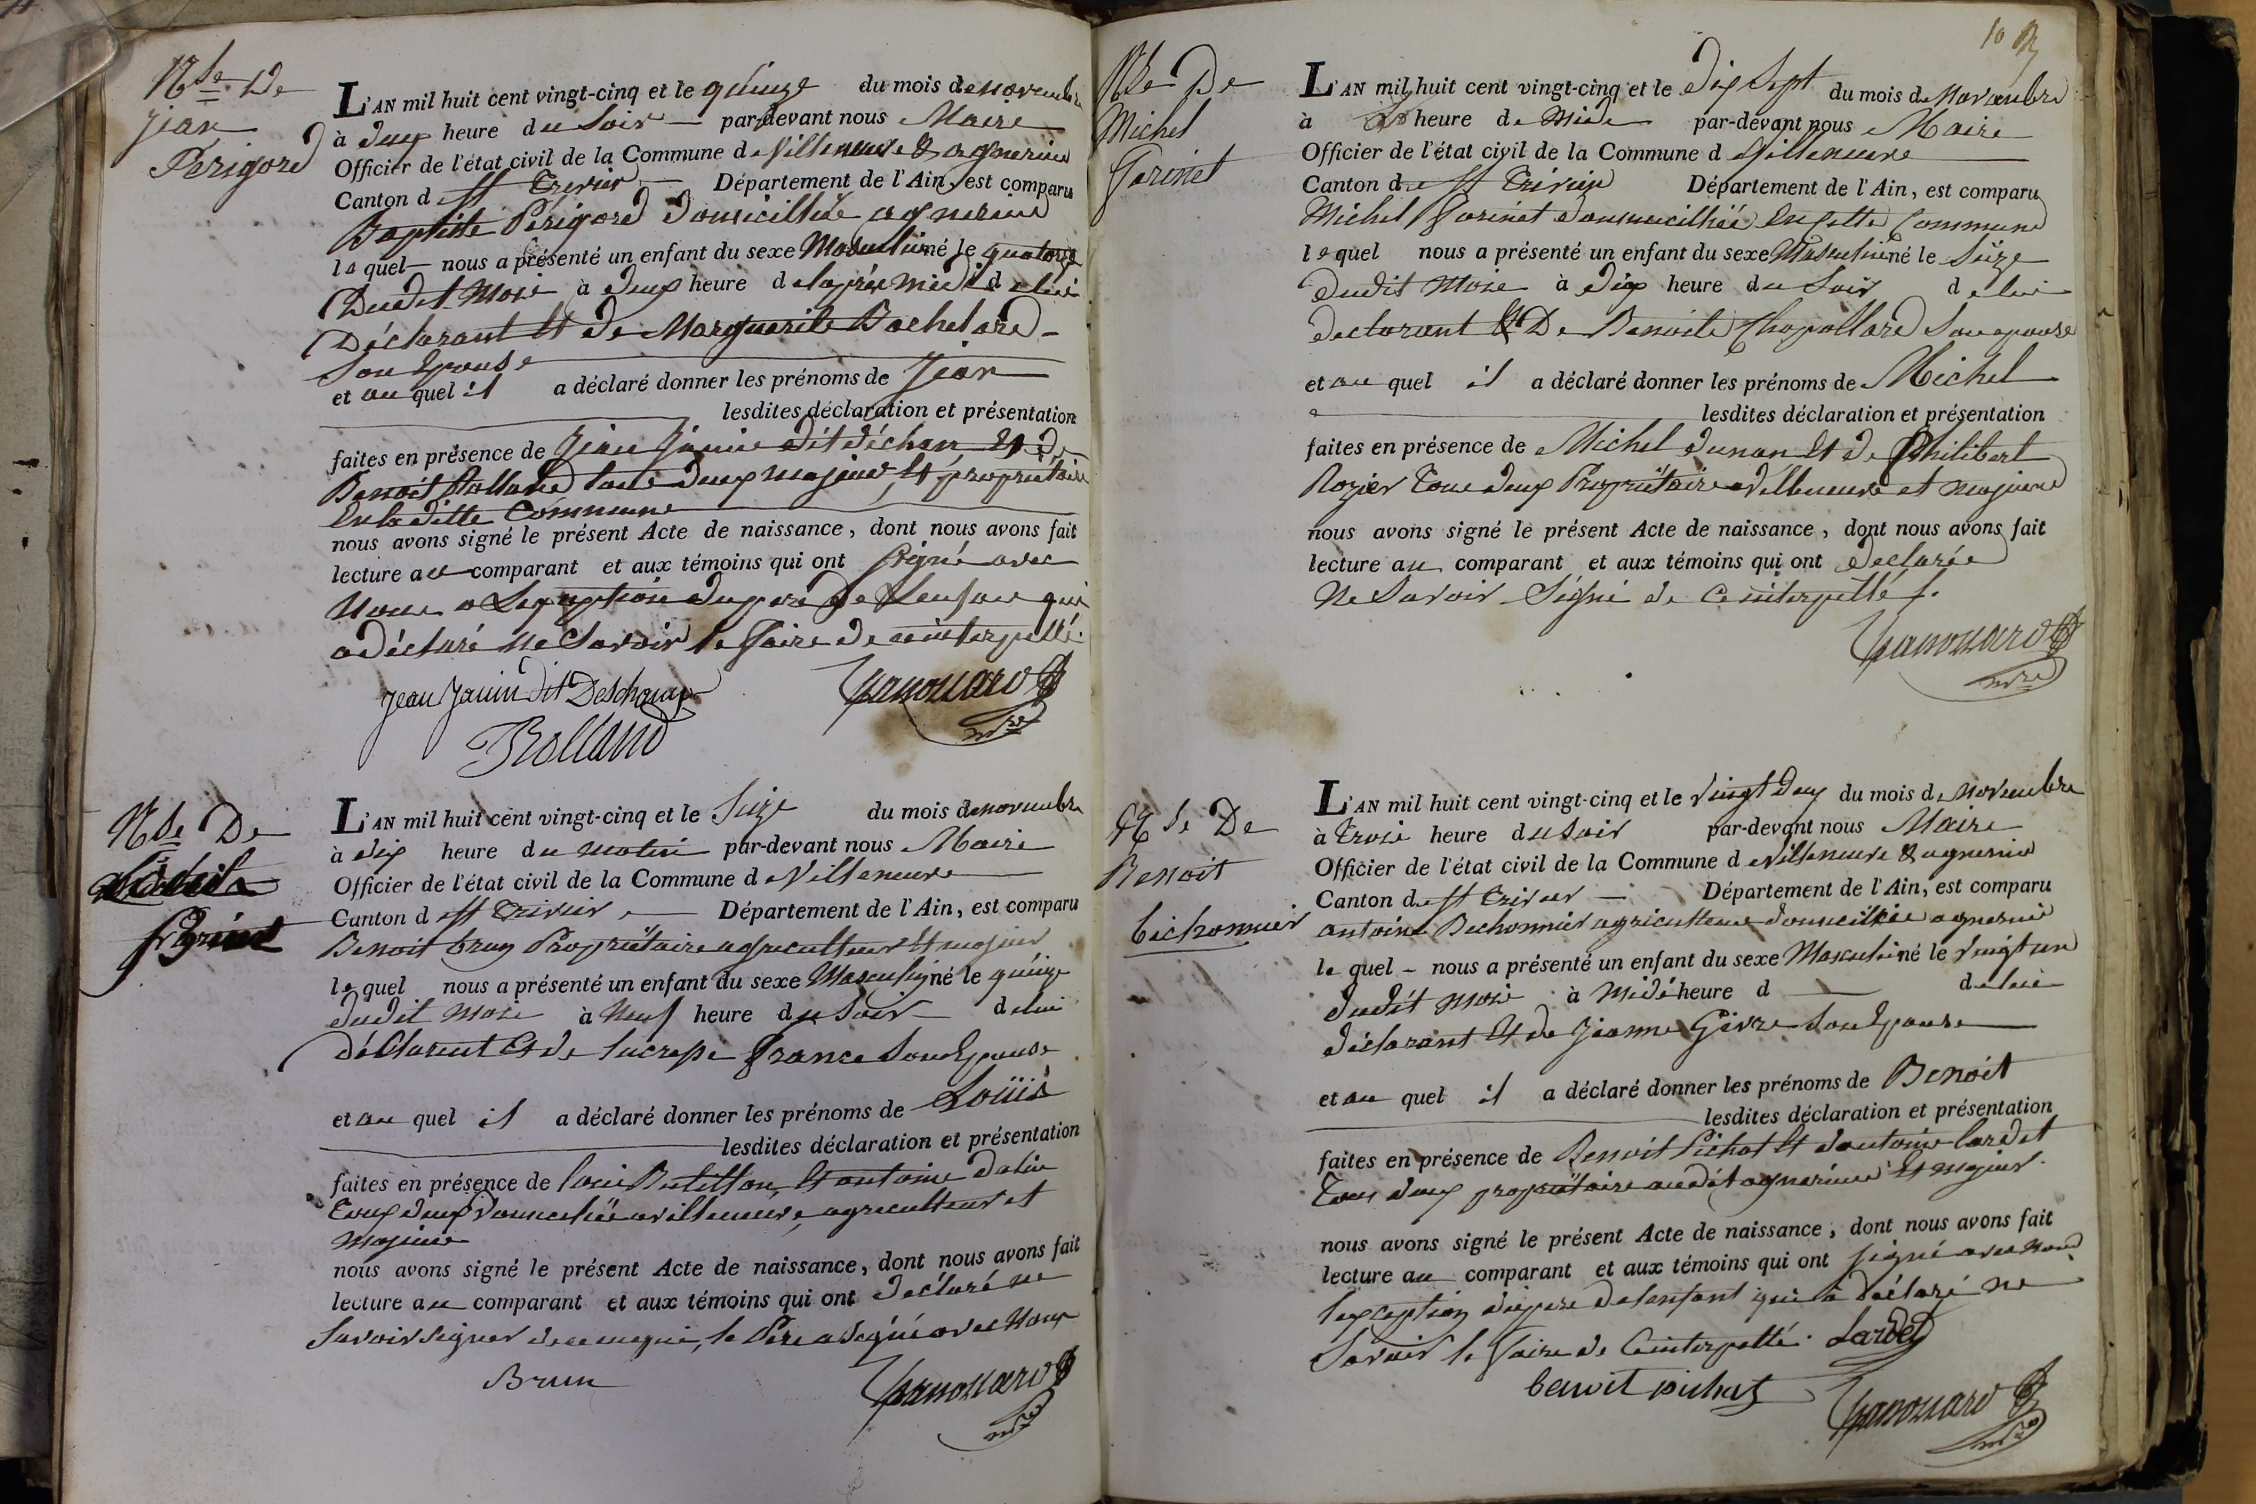 Nse De
jean
Perigord
L'AN mil huit cent vingt-cinq et le quinze du mois de novembre
à deux heure du Soir par-devant nous Maire
Officier de l'état civil de la Commune de Villeneuve & agnerieu
Canton d St Trivier Département de l'Ain, est comparu
Baptiste Périgord domicillié agnerieu
lequel nous a présenté un enfant du sexe Masculin né le quatorze
Dudit Mois à deux heure de laprès midi de lui
Déclarant Et de Marguerite Bachelard
Son Epouse
et au quel il a déclaré donner les prénoms de Jean
lesdites déclaration et présentation
faites en présence de Jean Janin dit déchan Et de
Benoit Rolland tous deux majeur Et propriétaire
En la ditte Commune
nous avons signé le présent Acte de naissance, dont nous avons fait
lecture au comparant et aux témoins qui ont signé avec
Nous a Lexception du pere de Lenfant qui
a déclaré ne Savoir le faire de ce interpellé.
Jean Janin dit Deschamp
Rolland
Nse De
L'AN mil huit cent vingt-cinq et le Seize du mois de novembre
à dix heure du matin par-devant nous Maire
Officier de l'état civil de la Commune de Villeneuve
Canton d St Trivier Département de l'Ain, est comparu
Benoit brun Propriétaire agriculteur Et majeur
lequel nous a présenté un enfant du sexe Masculin né le quinze
dudit Mois à Neuf heure du Soir de lui
déClarent Et de lucresse france Son Epouse
et au quel il a déclaré donner les prénoms de Loüis
lesdites déclaration et présentation
faites en présence de Et antoine
tous deux domicilié a villeneuve, agriculteur et
Majeur
nous avons signé le présent Acte de naissance, dont nous avons fait
lecture au comparant et aux témoins qui ont déclaré ne
Savoir signer de ce requi, le Père a signé avec Nous
Brun
10
Nse De
Michel
Garinet
L'AN mil huit cent vingt-cinq et le dix Sept du mois de Novembre
à heure de Midi par-devant nous Maire
Officier de l'état civil de la Commune d Villeneuve
Canton de St Trivier Département de l'Ain, est comparu
Michel Garinet domicillié En Cette Commune
lequel nous a présenté un enfant du sexe Masculin né le Seize
dudit Mois à dix heure du Soir de lui
declarant Et De Benoite Chapollard Son epouse
et au quel il a déclaré donner les prénoms de Michel
lesdites déclaration et présentation
faites en présence de Michel dunan Et de Philibert
Rozier Tous deux Propriétaire a Villeneuve et majeur
nous avons signé le présent Acte de naissance, dont nous avons fait
lecture au comparant et aux témoins qui ont declarée
Ne Savoir Signé de Ce interpellé
Nse De
Benoit
bichonnier
L'AN mil huit cent vingt-cinq et le Vingt deux du mois de novembre
à Trois heure du Soir par-devant nous Maire
Officier de l'état civil de la Commune de Villeneuve & agnerieu
Canton de St Trivier Département de l'Ain, est comparu
antoine Bichonnier agriculteur domicilié agnerieu
le quel nous a présenté un enfant du sexe Masculin né le Vingt un
dudit Mois à Midi heure d de lui
déclarant Et de Jeanne Givre Son Epouse
et au quel il a déclaré donner les prénoms de Benoit
lesdites déclaration et présentation
faites en présence de Benoit Pichat Et dantoine lardet
Tous deux propriétaire audit agnerieu Et majeur.
nous avons signé le présent Acte de naissance, dont nous avons fait
lecture au comparant et aux témoins qui ont signé avec nous
lexception dupere de lenfant qui a déclaré ne
Savoir le faire de Ce interpellé. Lardet
benoit pichat